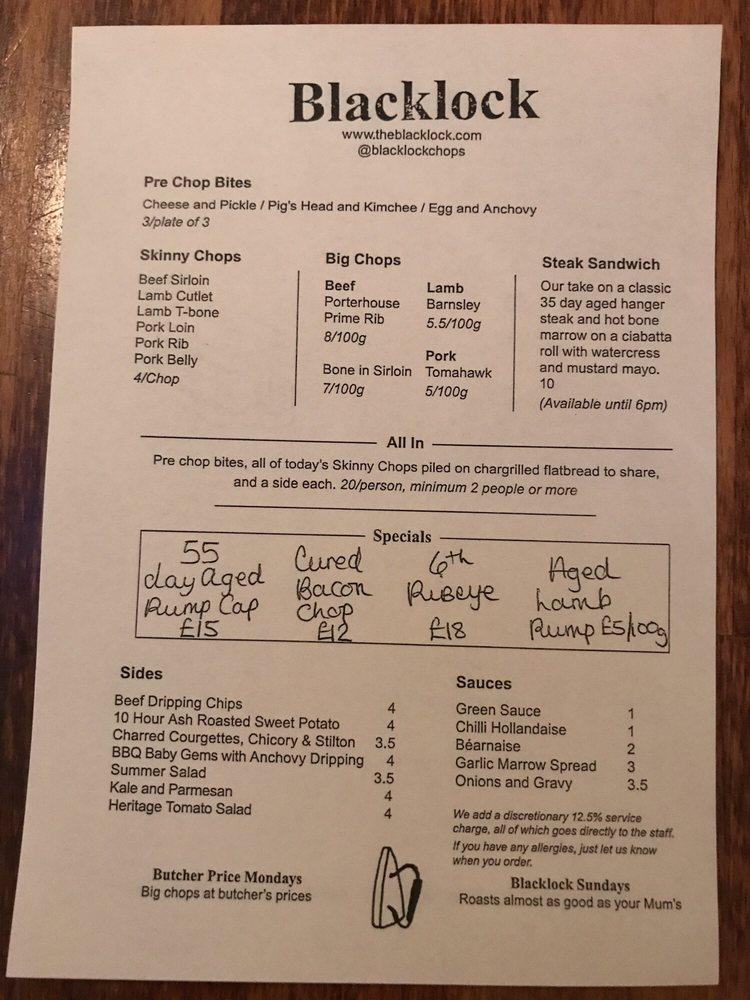 Blacklock
www.theblacklock.com
@blacklockchops
Pre Chop Bites
Cheese and Pickle / Pig's Head and Kimchee / Egg and Anchovy
3/plate of 3
Skinny Chops
Beef Sirloin
Lamb Cutlet
Lamb T-bone
Pork Loin
Pork Rib
Pork Belly
4/Chop
Big Chops
Beef
Porterhouse
Prime Rib
8/100g
Bone in Sirloin
7/100g
Lamb
Barnsley
5.5/100g
Pork
Tomahawk
5/100g
Steak Sandwich
Our take on a classic
35 day aged hanger
steak and hot bone
marrow on a ciabatta
roll with watercress
and mustard mayo.
10
(Available until 6pm)
All In
Pre chop bites, all of today's Skinny Chops piled on chargrilled flatbread to share,
and a side each. 20/person, minimum 2 people or more
Specials
55
day Aged
Rump Cap
£15
Cured
Bacon
Chop
£12
6th
Ribeye
£18
Aged
Lamb
Rump £5/100g
Sides
Beef Dripping Chips 4
10 Hour Ash Roasted Sweet Potato 4
Charred Courgettes, Chicory & Stilton 3.5
BBQ Baby Gems with Anchovy Dripping 4
Summer Salad 3.5
Kale and Parmesan 4
Heritage Tomato Salad 4
Sauces
Green Sauce 1
Chilli Hollandaise 1
Béarnaise 2
Garlic Marrow Spread 3
Onions and Gravy 3.5
We add a discretionary 12.5% service
charge, all of which goes directly to the staff.
If you have any allergies, just let us know
when you order.
Butcher Price Mondays
Big chops at butcher's prices
Blacklock Sundays
Roasts almost as good as your Mum's